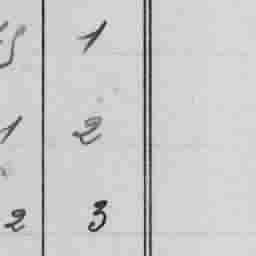 1
1 2
2 3